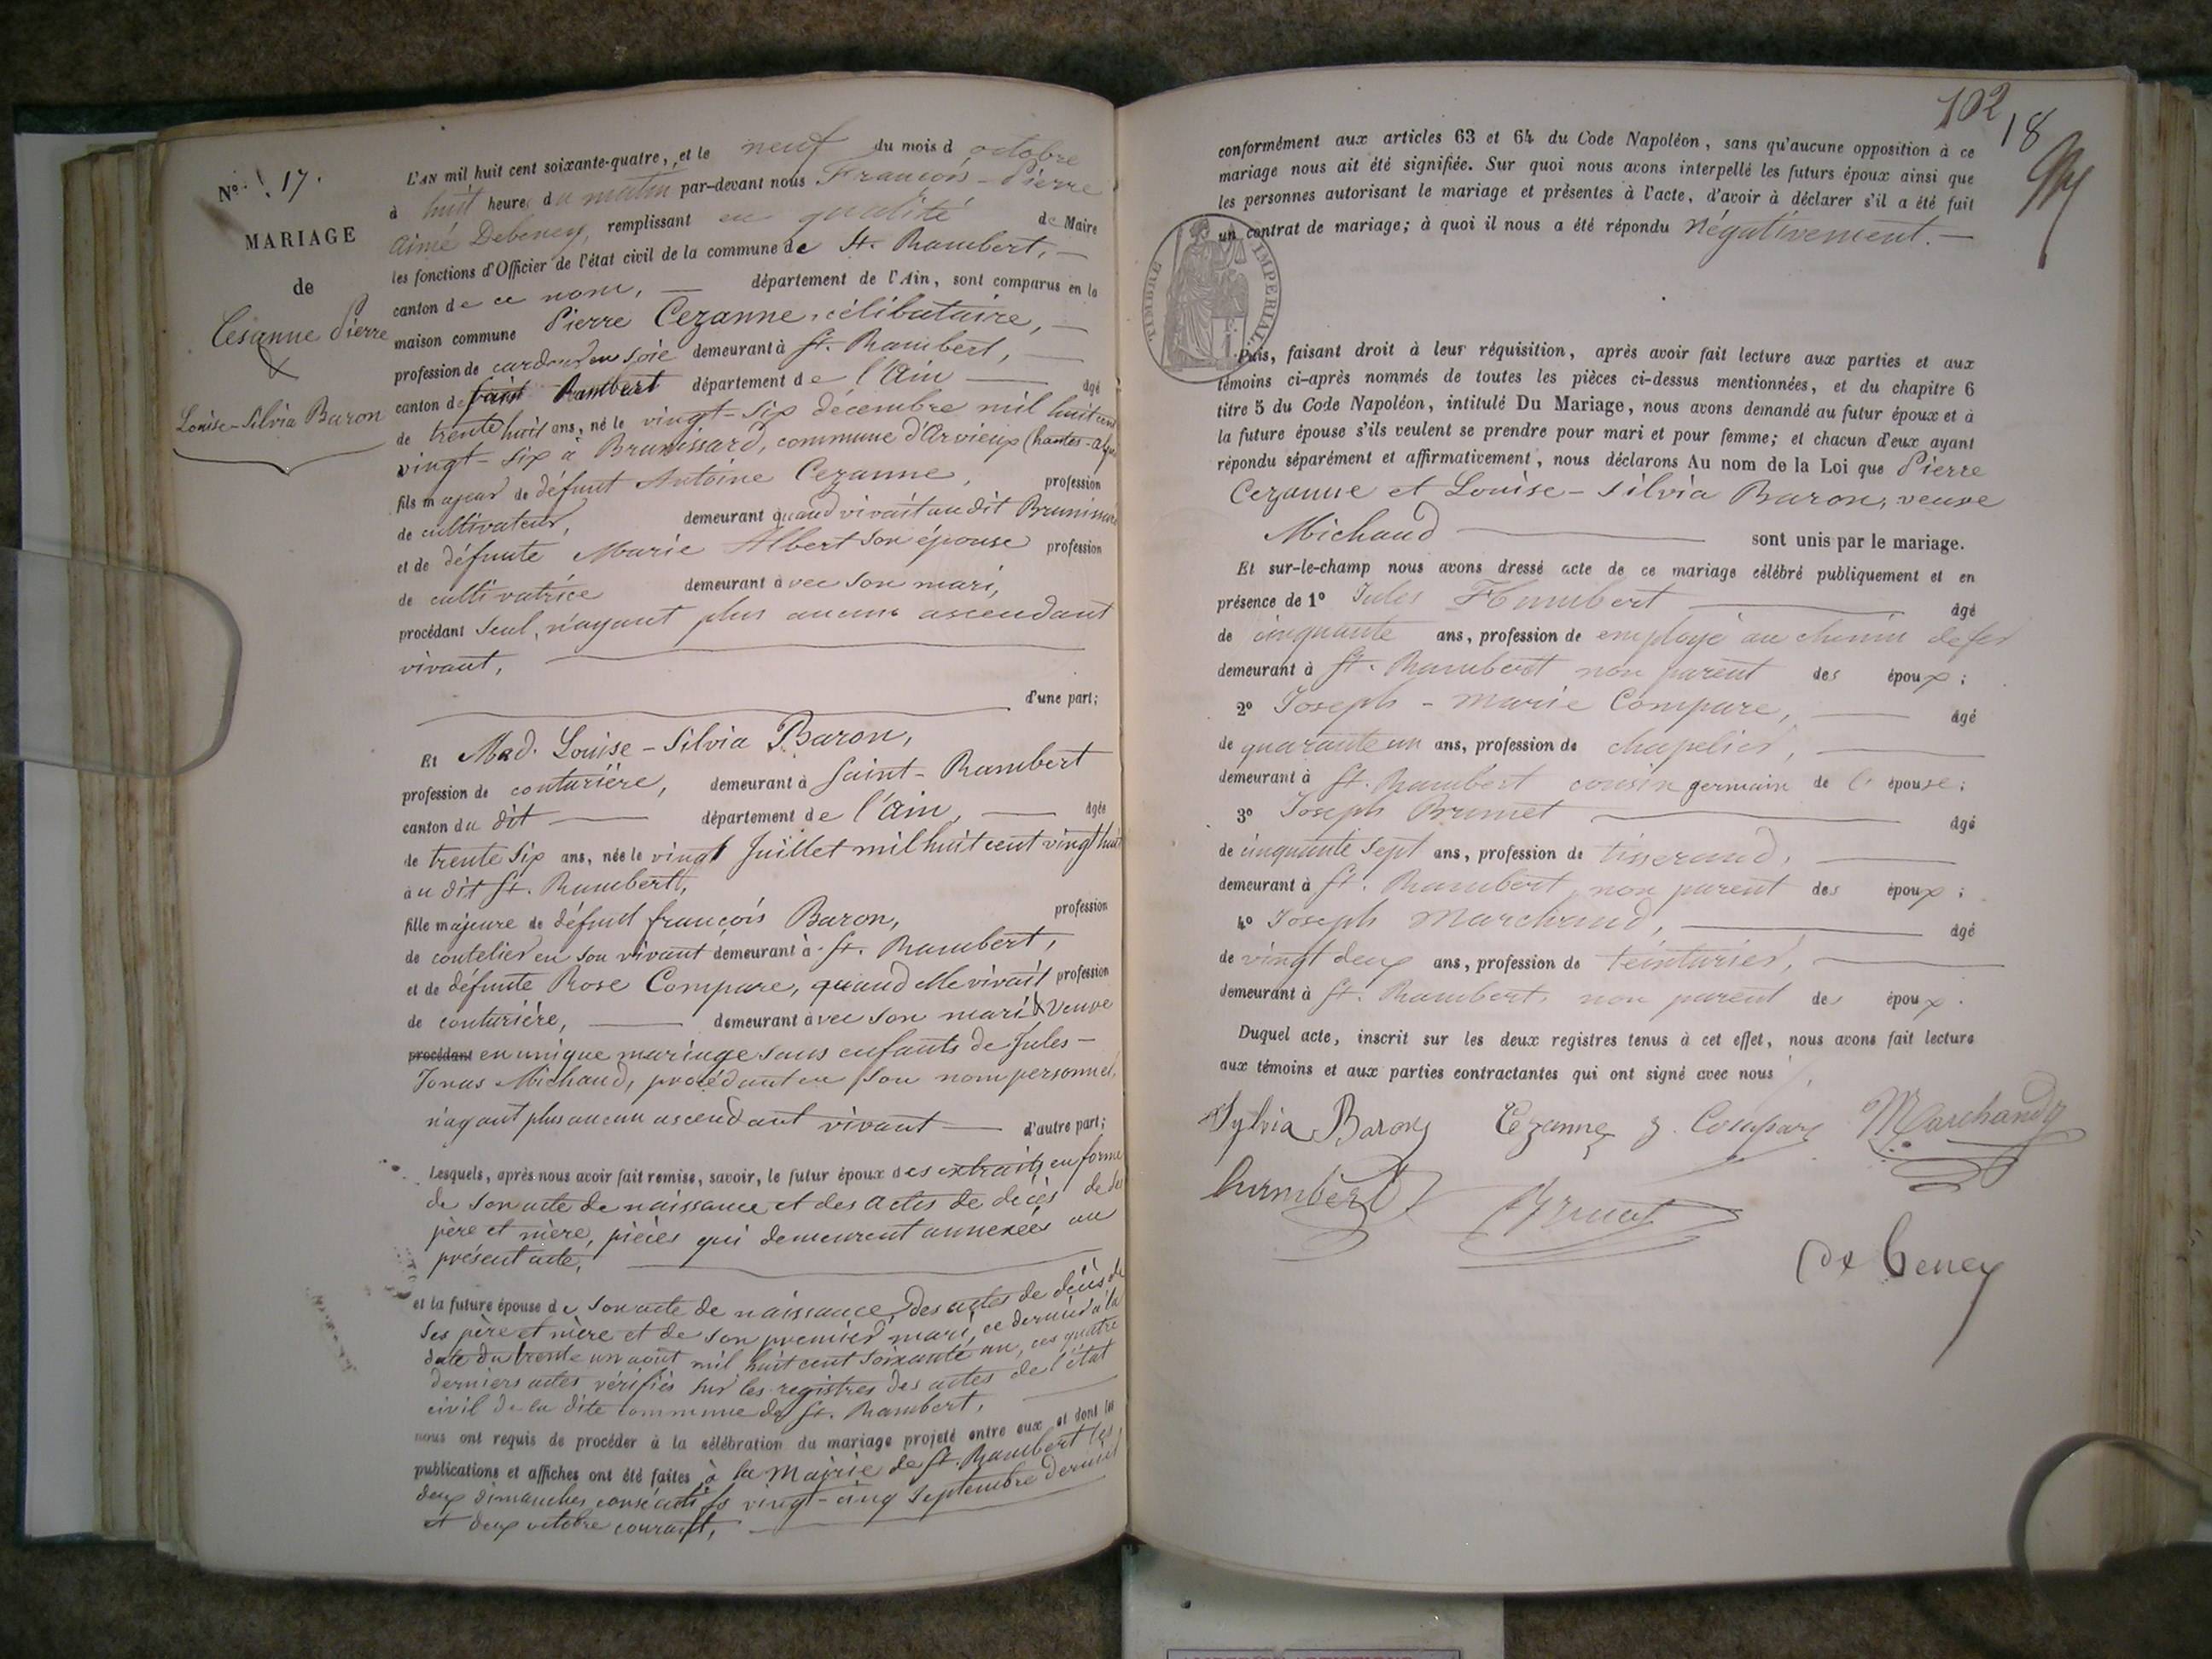 N° 17.
MARIAGE
de
Cesanne Pierre
&
Louise-Silvia Baron
L'AN mil huit cent soixante-quatre, et le neuf du mois d octobre
à huit heures du matin par-devant nous François-Pierre
Aimé Debeney, remplissant en qualité de Maire
les fonctions d'Officier de l'état civil de la commune de St. Rambert, —
canton de ce nom, — département de l'Ain, sont comparus en la
maison commune Pierre Cezanne, célibataire, —
profession de cardeur en soie demeurant à St. Rambert, —
canton de saint Rambert département de l'Ain — âgé
de trente huit ans, né le vingt-six décembre mil huit cent
vingt-six à Brunissard, commune d'Arvieux (hautes-alpes
fils majeur de défunt Antoine Cezanne, profession
de cultivateur, demeurant quand vivait au dit Brunissard
et de défunte Marie Albert son épouse profession
de cultivatrice demeurant avec son mari,
procédant seul, n'ayant plus aucun ascendant
vivant, —
d'une part;
Et Mad. Louise-Silvia Baron,
profession de couturière, demeurant à Saint-Rambert
canton du dit — département de l'Ain, — âgée
de trente six ans, née le vingt Juillet mil huit cent vingt huit
au dit St. Rambert,
fille majeure de défunt françois Baron, profession
de coutelier en son vivant demeurant à St. Rambert,
et de défunte Rose Compare, quand elle vivait profession
de couturière, — demeurant avec son mari & Veuve
procédant en unique mariage sans enfants de Jules-
Jonas Michaud, procédant en son nom personnel,
n'ayant plus aucun ascendant vivant — d'autre part;
Lesquels, après nous avoir fait remise, savoir, le futur époux des extraits en forme
de son acte de naissance et des actes de décès de ses
père et mère, pièces qui demeurent annexées au
présent acte, —
et la future épouse de son acte de naissance, des actes de décès de
ses père et mère et de son premier mari, ce dernier à la
date du trente un août mil huit cent soixante un, ces quatre
derniers actes vérifiés sur les registres des actes de l'état
civil de la dite commune de St. Rambert, —
nous ont requis de procéder à la célébration du mariage projeté entre eux et dont les
publications et affiches ont été faites à la Mairie de St. Rambert les
deux dimanches consécutifs vingt-cinq septembre dernier
et deux octobre courant, —
102
18
conformément aux articles 63 et 64 du Code Napoléon, sans qu'aucune opposition à ce
mariage nous ait été signifiée. Sur quoi nous avons interpellé les futurs époux ainsi que
les personnes autorisant le mariage et présentes à l'acte, d'avoir à déclarer s'il a été fait
un contrat de mariage; à quoi il nous a été répondu Négativement. —
TIMBRE IMPERIAL
Puis, faisant droit à leur réquisition, après avoir fait lecture aux parties et aux
témoins ci-après nommés de toutes les pièces ci-dessus mentionnées, et du chapitre 6
titre 5 du Code Napoléon, intitulé Du Mariage, nous avons demandé au futur époux et à
la future épouse s'ils veulent se prendre pour mari et pour femme; et chacun d'eux ayant
répondu séparément et affirmativement, nous déclarons Au nom de la Loi que Pierre
Cezanne et Louise-Silvia Baron, veuve
Michaud — sont unis par le mariage.
Et sur-le-champ nous avons dressé acte de ce mariage célébré publiquement et en
présence de 1° Jules Humbert — âgé
de cinquante ans, profession de employé au chemin de fer
demeurant à St. Rambert non parent des époux;
2° Joseph-Marie Compare, — âgé
de quarante un ans, profession de chapelier, —
demeurant à St. Rambert cousin germain de l'épouse;
3° Joseph Brunet — âgé
de cinquante sept ans, profession de tisserand, —
demeurant à St. Rambert, non parent des époux;
4° Joseph Marchand, — âgé
de vingt deux ans, profession de teinturier, —
demeurant à St. Rambert, non parent des époux.
Duquel acte, inscrit sur les deux registres tenus à cet effet, nous avons fait lecture
aux témoins et aux parties contractantes qui ont signé avec nous
Sylvia Baron Cezanne J. Compare Marchand
humbert Brunet
debeney